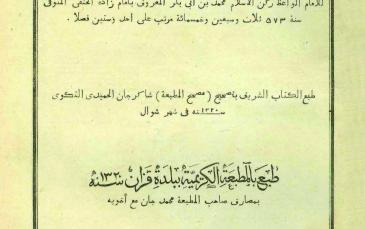 للامام الواعظ ركن الاسلام محمد بن ابى بكر المعروف بامام زاده الحنفى المتوفى
سنة ٥٧٣ ثلاث وسبعين وخمسمائة مرتب على احد وستين فصلا .
طبع الكتاب الشريف بتصحيح ( مصحح المطبعة ) شاكرجان الحميدى التكوى
سنه ١٣٢٠ فى شهر شوال
طبع بالمطبعة الكريمية ببلدة قزان سنه ١٣٢٠
بمصارف صاحب المطبعة محمد جان مع اخويه